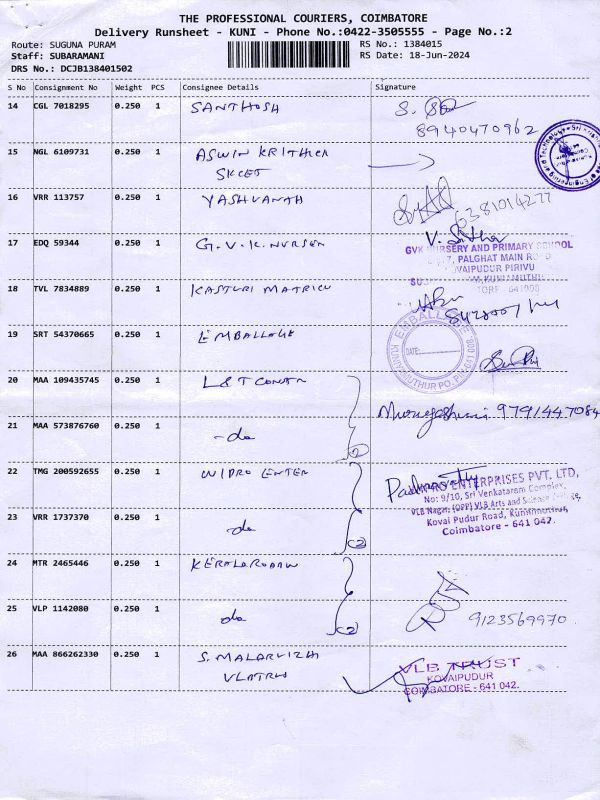 THE PROFESSIONAL COURIERS, COIMBATORE
Delivery Runsheet - KUNI - Phone No.:0422-3505555 - Page No.:2
Route: SUGUNA PURAM
Staff: SUBARAMANI
DRS No.: DCJB138401502
RS No.: 1384015
RS Date: 18-Jun-2024
S No Consignment No Weight PCS Consignee Details Signature
14 CGL 7018295 0.250 1 SANTHOSH
8940470962
15 NGL 6109731 0.250 1 ASWIN
SKCET
16 VRR 113757 0.250 1 YASHVANTH 6381014277
17 EDQ 59344 0.250 1 G.V.K. NURSERY
GVK NURSERY AND PRIMARY SCHOOL
PALGHAT MAIN ROAD
PIRIVU
18 TVL 7834889 0.250 1 KASTURI MATRICU
19 SRT 54370665 0.250 1 EMBALLAGE
EMBALLAGE
DATE:
20 MAA 109435745 0.250 1 L&T CONSTN
Murugeshwari 9791447084
21 MAA 573876760 0.250 1 -do (2)
22 TMG 200592655 0.250 1 WIPRO ENTER
ENTERPRISES PVT. LTD,
No: 9/10, Sri Venkataram Complex,
VLB Nagar, (OPP) VLB Arts and Science College,
Kovai Pudur Road, Kuniamuthur,
Coimbatore - 641 042.
23 VRR 1737370 0.250 1 do (2)
24 MTR 2465446 0.250 1
25 VLP 1142080 0.250 1 do (2) 9123569970
26 MAA 866262330 0.250 1 S. MALARVIZH
VLBTRUS
VLB TRUST
KOVAIPUDUR
COIMBATORE - 641 042.